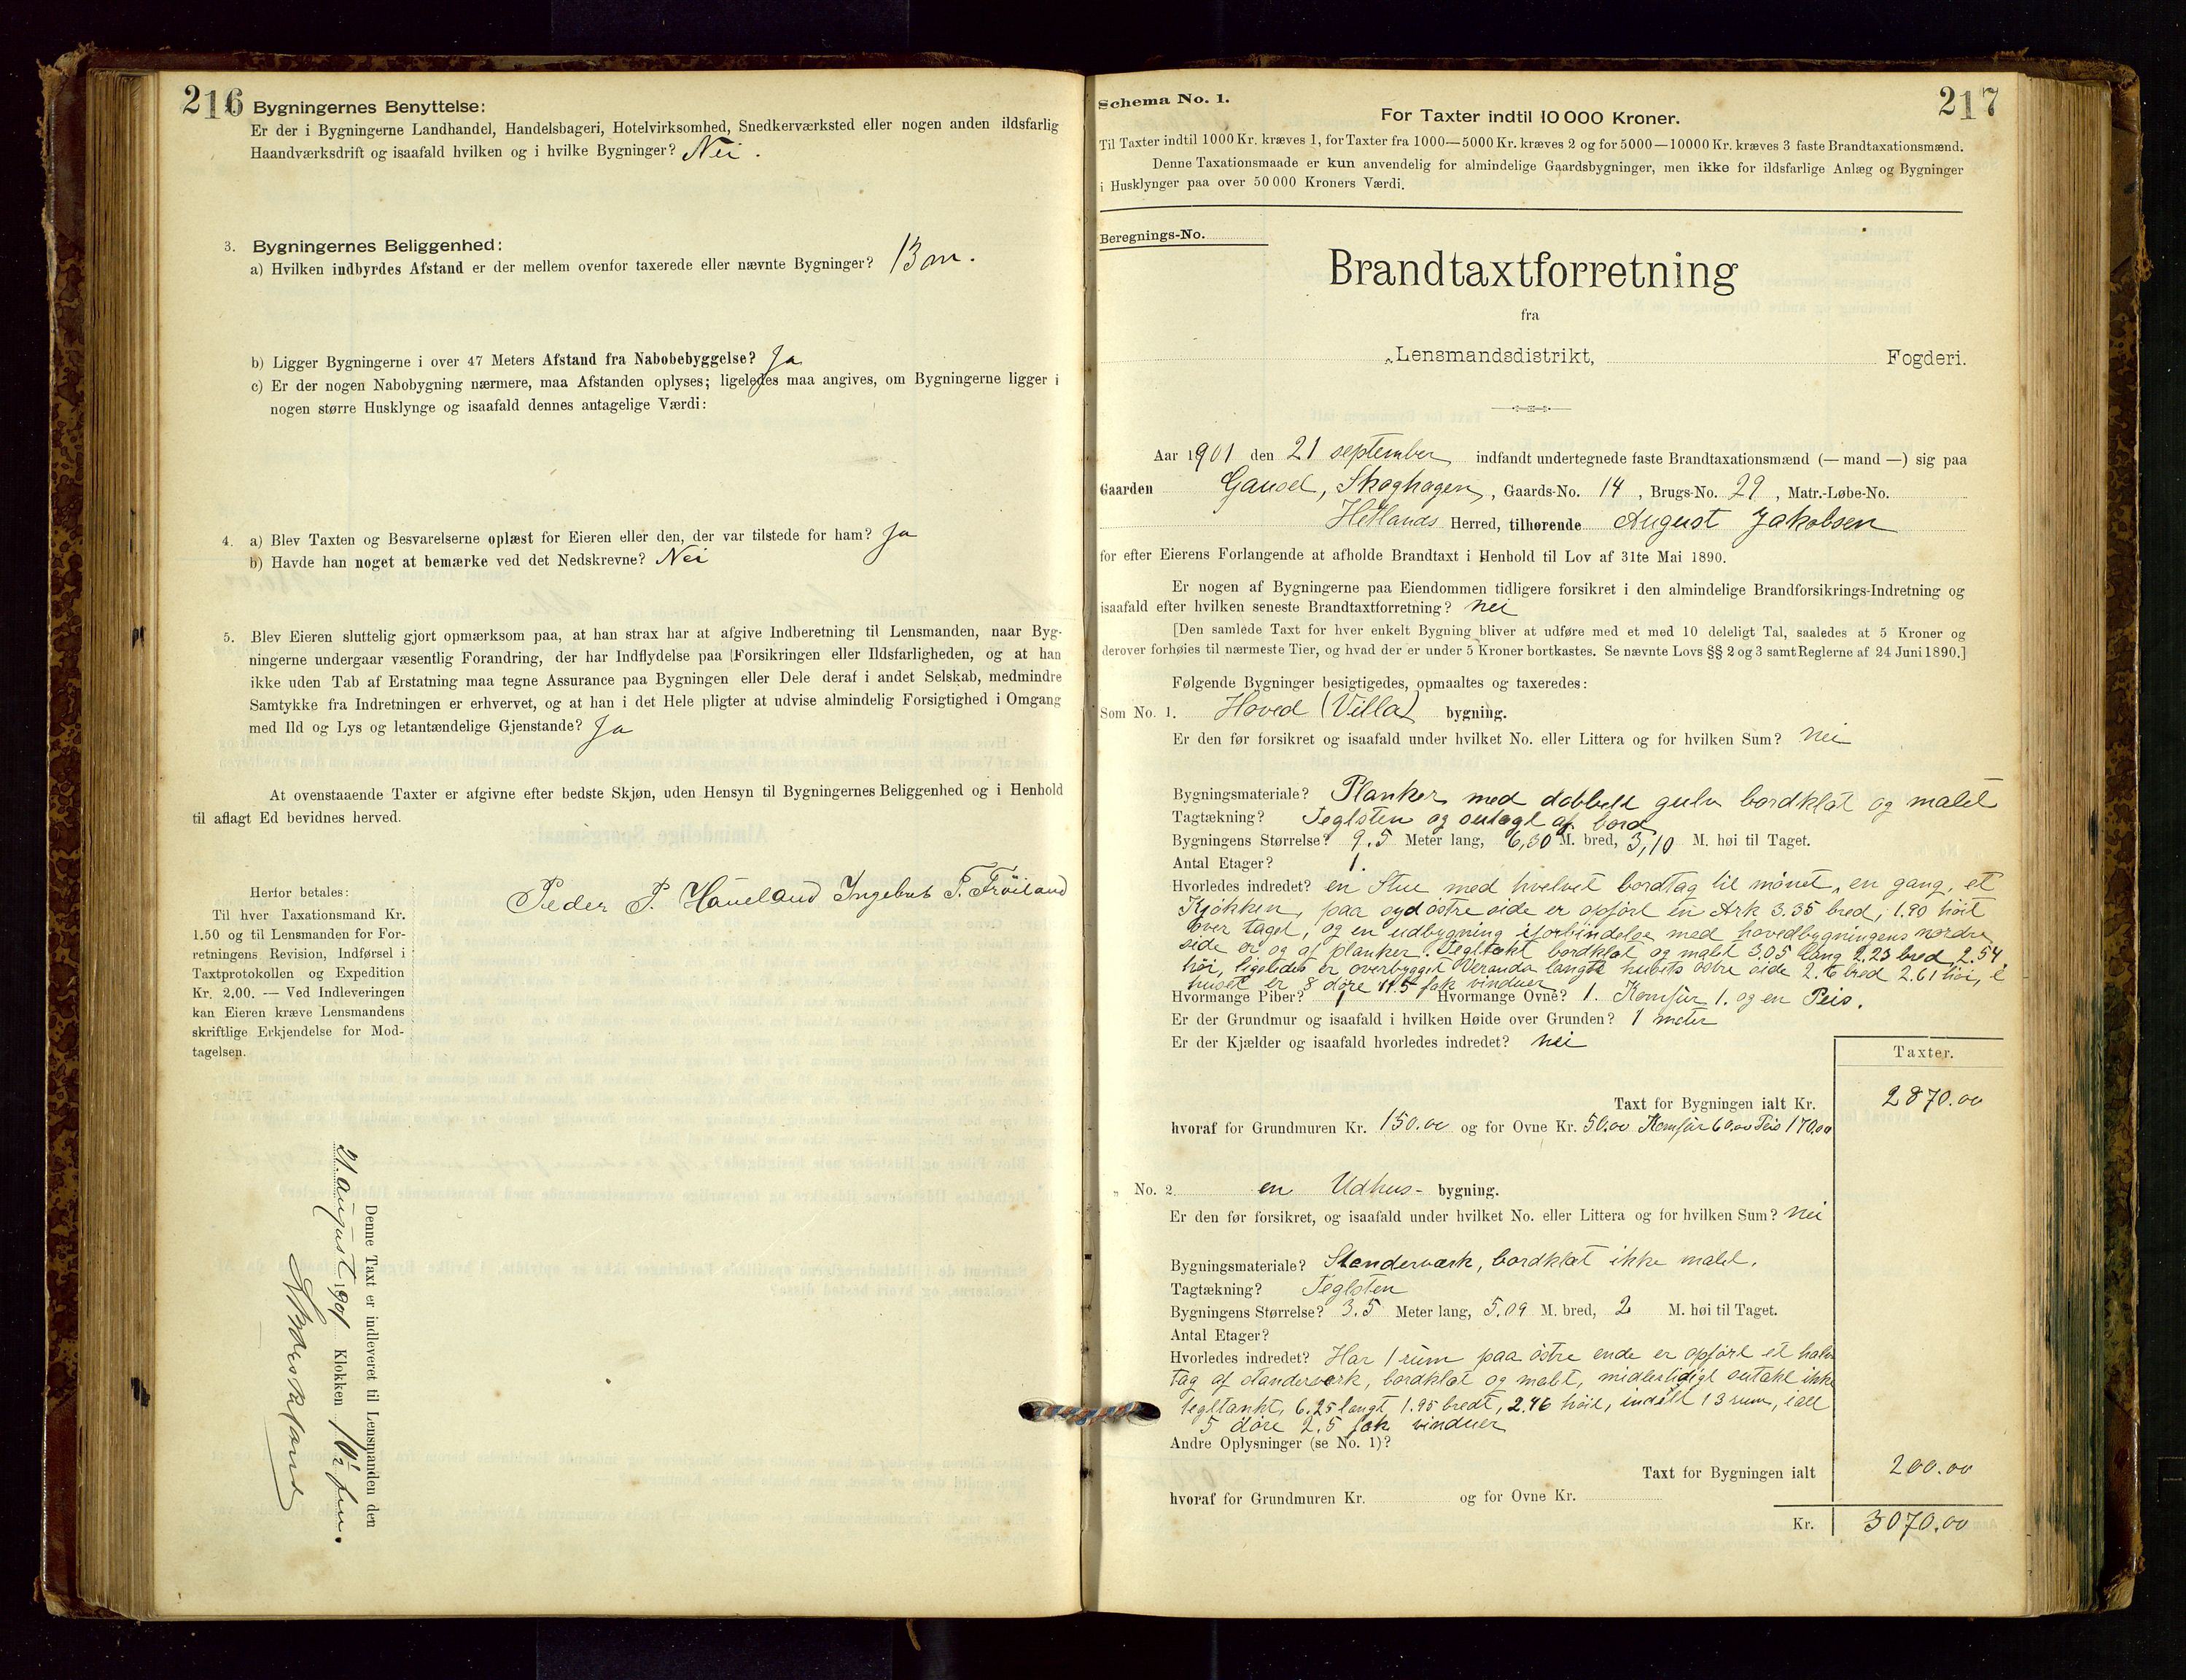 216
Bygningernes Benyttelse:
Er der i Bygningerne Landhandel, Handelsbageri, Hotelvirksomhed, Snedkerværksted eller nogen anden ildsfarlig
Haandværksdrift og isaafald hvilken og i hvilke Bygninger? Nei.
3. Bygningernes Beliggenhed:
a) Hvilken indbyrdes Afstand er der mellem ovenfor taxerede eller nævnte Bygninger? 13 m.
b) Ligger Bygningerne i over 47 Meters Afstand fra Nabobebyggelse? Ja
c) Er der nogen Nabobygning nærmere, maa Afstanden oplyses; ligeledes maa angives, om Bygningerne ligger i
nogen større Husklynge og isaafald dennes antagelige Værdi:
4. a) Blev Taxten og Besvarelserne oplæst for Eieren eller den, der var tilstede for ham? Ja
b) Havde han noget at bemærke ved det Nedskrevne? Nei
5. Blev Eieren sluttelig gjort opmærksom paa, at han strax har at afgive Indberetning til Lensmanden, naar Byg-
ningerne undergaar væsentlig Forandring, der har Indflydelse paa Forsikringen eller Ildsfarligheden, og at han
ikke uden Tab af Erstatning maa tegne Assurance paa Bygningen eller Dele deraf i andet Selskab, medmindre
Samtykke fra Indretningen er erhvervet, og at han i det Hele pligter at udvise almindelig Forsigtighed i Omgang
med Ild og Lys og letantændelige Gjenstande? Ja
At ovenstaaende Taxter er afgivne efter bedste Skjøn, uden Hensyn til Bygningernes Beliggenhed og i Henhold
til aflagt Ed bevidnes herved.
Peder P. Haueland Ingebret T. Fröiland
Herfor betales:
Til hver Taxationsmand Kr.
1.50 og til Lensmanden for For-
retningens Revision, Indførsel i
Taxtprotokollen og Expedition
Kr. 2.00. — Ved Indleveringen
kan Eieren kræve Lensmandens
skriftlige Erkjendelse for Mod-
tagelsen.
Denne Taxt er indleveret til Lensmanden den
21. august 1901 Klokken 10½ fm.
217
Schema No. 1.
For Taxter indtil 10 000 Kroner.
Til Taxter indtil 1000 Kr. kræves 1, for Taxter fra 1000—5000 Kr. kræves 2 og for 5000—10000 Kr. kræves 3 faste Brandtaxationsmænd.
Denne Taxationsmaade er kun anvendelig for almindelige Gaardsbygninger, men ikke for ildsfarlige Anlæg og Bygninger
i Husklynger paa over 50 000 Kroners Værdi.
Beregnings-No.
Brandtaxtforretning
fra
Lensmandsdistrikt, Fogderi.
Aar 1901 den 21 september indfandt undertegnede faste Brandtaxationsmænd (— mand —) sig paa
Gaarden Gausel, Skoghagen, Gaards-No. 14, Brugs-No. 29, Matr.-Løbe-No.
Hetlands Herred, tilhørende August Jakobsen
for efter Eierens Forlangende at afholde Brandtaxt i Henhold til Lov af 31te Mai 1890.
Er nogen af Bygningerne paa Eiendommen tidligere forsikret i den almindelige Brandforsikrings-Indretning og
isaafald efter hvilken seneste Brandtaxtforretning? nei
[Den samlede Taxt for hver enkelt Bygning bliver at udføre med et med 10 deleligt Tal, saaledes at 5 Kroner og
derover forhøies til nærmeste Tier, og hvad der er under 5 Kroner bortkastes. Se nævnte Lovs §§ 2 og 3 samt Reglerne af 24 Juni 1890.]
Følgende Bygninger besigtigedes, opmaaltes og taxeredes:
Som No. 1. Hoved (Villa) bygning.
Er den før forsikret og isaafald under hvilket No. eller Littera og for hvilken Sum? nei
Bygningsmateriale? Planker med dobbelt gulv bordklæt og malet
Tagtækning? Teglsten og sutagt af bord
Bygningens Størrelse? 9.5 Meter lang, 6,30 M. bred, 3,10 M. høi til Taget.
Antal Etager? 1.
Hvorledes indredet? en Stue med hvelvet bordtag til mönet, en gang, et
Kjökken, paa sydöstre side er opfört en Ark 3.35 bred, 1.90 höit
over taget, og en udbygning iforbindelse med hovedbygningens nordre
side er og af planker. Tegltækt bordklæt og malet 3.05 lang 2.23 bred 2.54
höi, ligeledes er overbygget Veranda langts husets östre side 2.16 bred 2.61 höi, i
huset er 8 döre 11.5 fak vinduer
Hvormange Piber? 1 Hvormange Ovne? 1. Komfür 1. og en Peis.
Er der Grundmur og isaafald i hvilken Høide over Grunden? 1 meter
Er der Kjælder og isaafald hvorledes indredet? nei
Taxter.
Taxt for Bygningen ialt Kr. 2870.00
hvoraf for Grundmuren Kr. 150.00 og for Ovne Kr. 50.00 Komfür 60.00 Peis 170.00
„ No. 2 en Udhus- bygning.
Er den før forsikret, og isaafald under hvilket No. eller Littera og for hvilken Sum? nei
Bygningsmateriale? Stenderværk, bordklæt ikke malet.
Tagtækning? Teglsten
Bygningens Størrelse? 3.5 Meter lang, 5.09 M. bred, 2 M. høi til Taget.
Antal Etager?
Hvorledes indredet? Har 1 rum paa östre ende er opfört et halv
tag af standerværk, bordklæt og malet, midlertidigt sutakt ikke
tegltænkt, 6.25 langt 1.95 bredt, 2.46 höit, indelt i 3 rum, i alt
5 döre 2.5 fak vinduer
Andre Oplysninger (se No. 1)?
Taxt for Bygningen ialt 200.00
hvoraf for Grundmuren Kr. og for Ovne Kr.
Kr. 3070.00